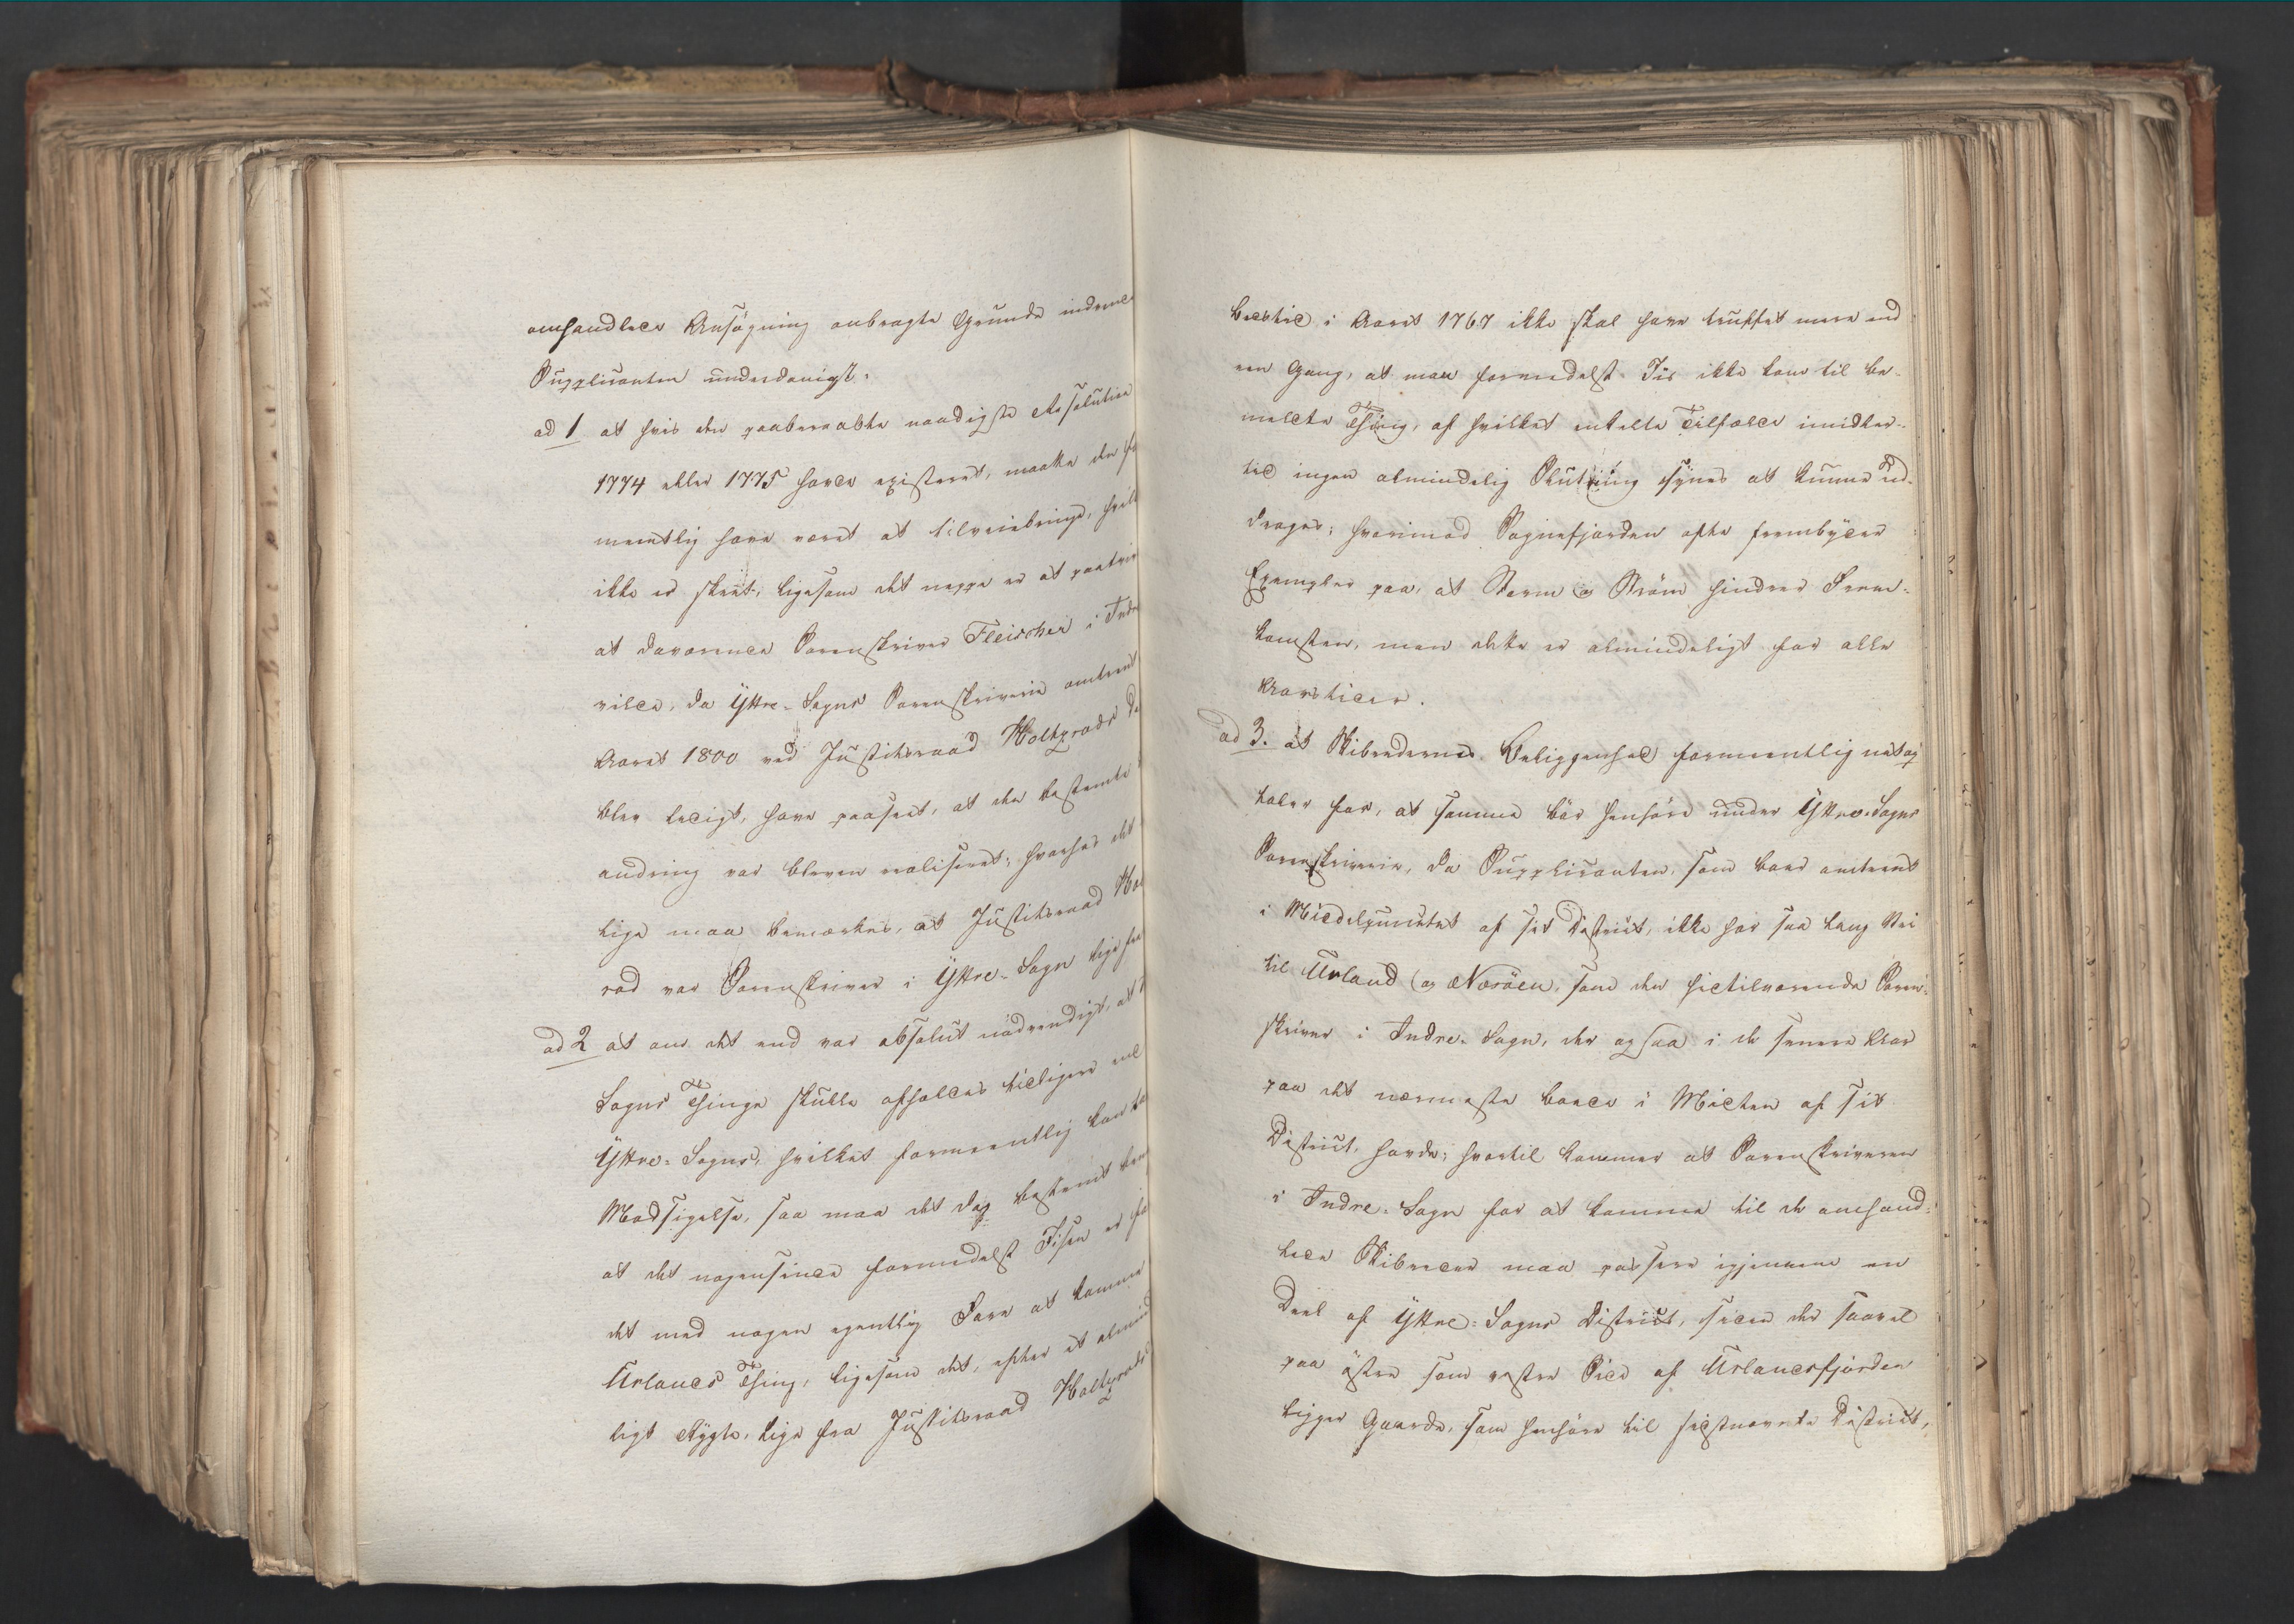 omhandlede Ansøgning anbragte Grunde indvend
Supplicanten underdanigst:
ad 1 at hvis den paaberaabte naadigste Resolution
1774 eller 1775 havde existeret, maatte den for
meentlig have været at tilveiebringe, hvilk
ikke er skeet, ligesom det neppe er at paatvivl
at daværende Sorenskriver Fleischer i Indre
vilde, da Yttre-Sogns Sorenskriverie omtrent
Aaret 1800 ved Justitsraad Holtzrads Dø
blev ledigt, have paaseet, at den bestemte
andring var bleven realiseret; hvorhos det
lige maa bemærkes, at Justitsraad Hol
rad var Sorenskriver i Yttre-Sogn lige fra
ad 2 at om det end var absolut nødvendigt, at
Sogns Thinge skulle afholdes tidligere end
Yttre-Sogns, hvilket formeentlig kan ta
Modsigelse, saa maa det dog bestemt ben
at det nogensinde formedelst Iisen er fo
det med nogen egentlig Fare at komme
Urlands Thing, ligesom det, efter et almind
ligt Rygte, lige fra Justitsraad Holtzrads
Besttid i Aaret 1767 ikke skal have truffet mere end
een Gang, at man formedelst Iis ikke kom til be-
meldte Thing, af hvilket enkelte Tilfælde imidler-
tid ingen almindelig Slutning synes at kunne ud-
drages; hvorimod Sognefjorden ofte frembyder
Exempler paa, at Storm og Strøm hindrer Frem-
komsten, men dette er almindeligt for alle
Aarstider.
ad 3. at Skibredernes Beliggenhed formeentlig netop
taler for, at samme bør henhøre under Yttre-Sogns
Sorenskriverie, da Supplicanten, som boer omtrent
i Middelpunctet af sit District, ikke har saa lang Vei
til Urland og Nærøen, som den hidtilværende Soren-
skriver i Indre-Sogn, der ogsaa i de senere Aar
paa det nærmeste boede i Midten af sit
District, havde; hvortil kommer at Sorenskriveren
i Indre-Sogn for at komme til de omhand-
lede Skibreder maa passere igjennem en
Deel af Yttre-Sogns District, siden der saavel
paa østre som vestre Side af Urlandsfjorden
ligger Gaarde, som henhøre til sidstnævnte District,